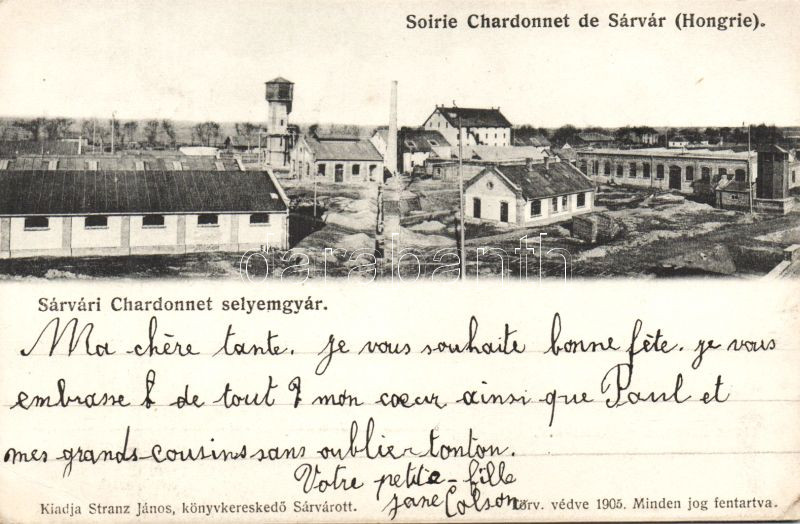 Soirie Chardonnet de Sárvár (Hongrie).
darabanth
Sárvári Chardonnet selyemgyár.
Ma chère tante. je vous souhaite bonne fête. je vous
embrasse de tout mon coeur ainsi que Paul et
mes grands cousins sans oublier tonton.
Votre petite-fille
jane Colson
Kiadja Stranz János, könyvkereskedő Sárvárott.
Törv. védve 1905. Minden jog fentartva.